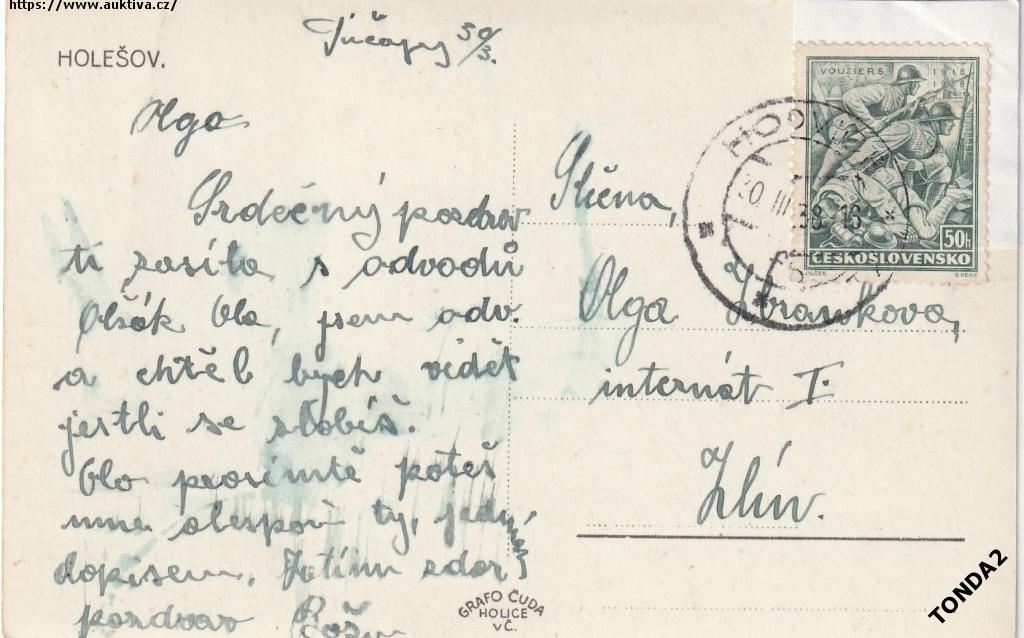 https://www.auktiva.cz/
HOLEŠOV.
30/3.
Olga
Srdečný pozdrav
ti zasíla s odvodů
Olšák Ola, jsem odv.
a chtěl bych vidět
jestli se zlobíš.
Olo prosímtě potěš
mne alespoň ty, jedním
dopisem. Zatím zdar
pozdrav
Slečna,
Olga
internát I.
Zlín.
VOUZIERS 1918
1938
50h
ČESKOSLOVENSKO
30 III 38 - 16
GRAFO ČUDA
HOLICE
V Č.
TONDA2